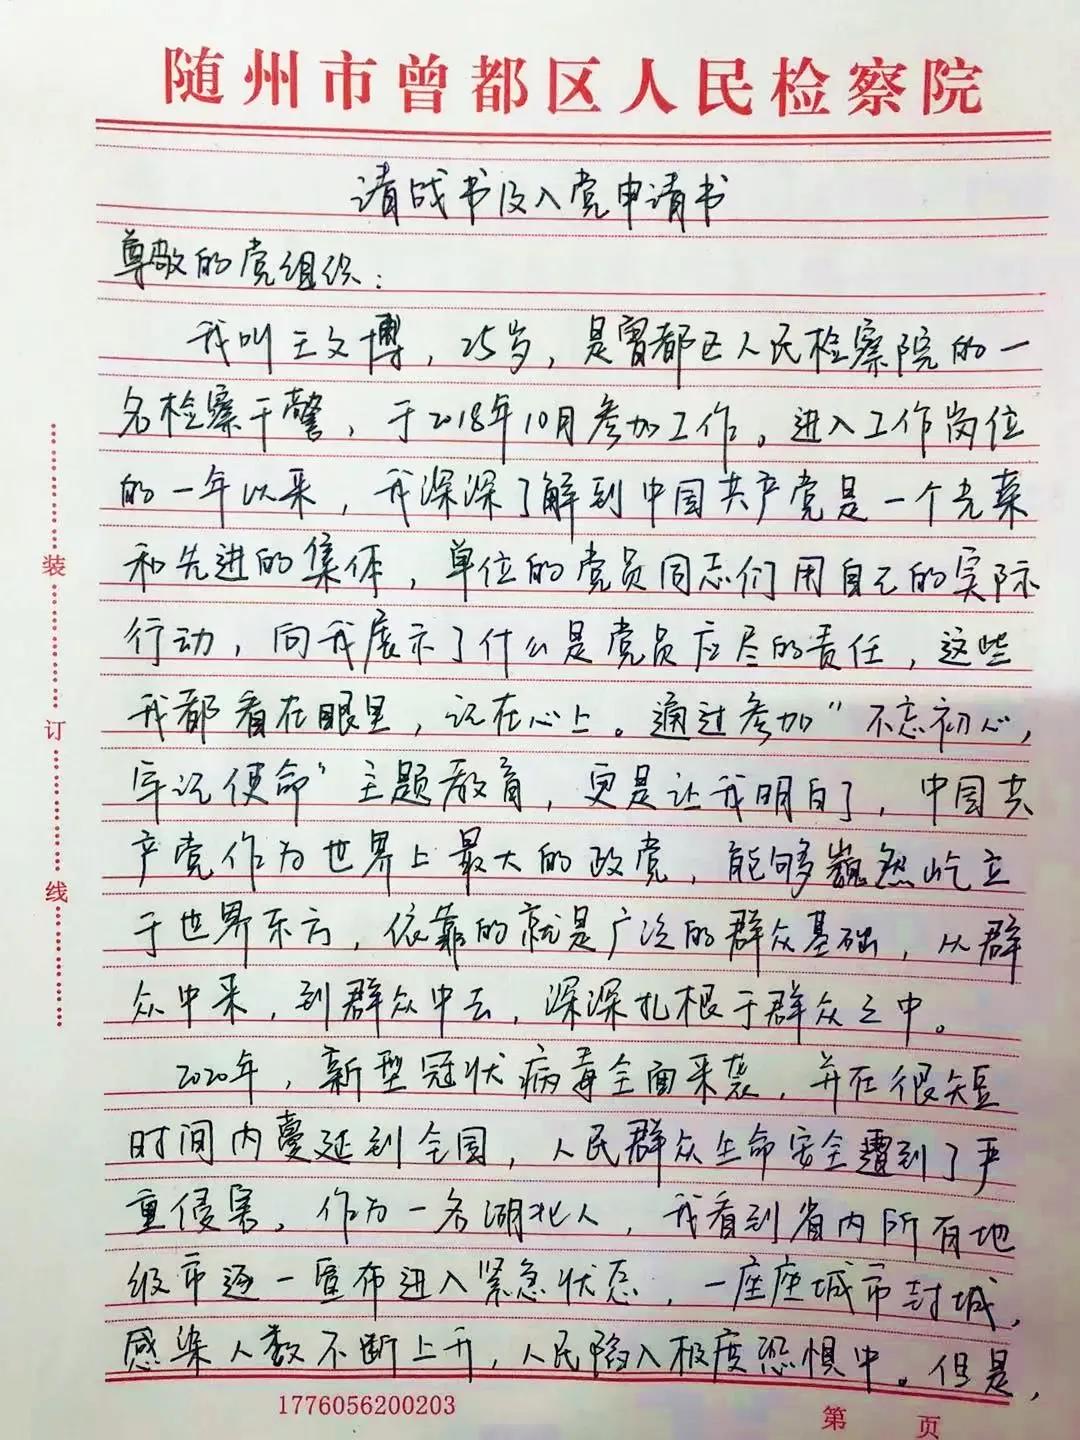 随州市曾都区人民检察院
请战书及入党申请书
尊敬的党组织：
我叫王文博，25岁，是曾都区人民检察院的一
名检察干警，于2018年10月参加工作。进入工作岗位
的一年以来，我深深了解到中国共产党是一个光荣
和先进的集体，单位的党员同志们用自己的实际
行动，向我展示了什么是党员应尽的责任，这些
我都看在眼里，记在心上。通过参加“不忘初心，
牢记使命”主题教育，更是让我明白了，中国共
产党作为世界上最大的政党，能够巍然屹立
于世界东方，依靠的就是广泛的群众基础，从群
众中来，到群众中去，深深扎根于群众之中。
2020年，新型冠状病毒全面来袭，并在很短
时间内蔓延到全国，人民群众生命安全遭到了严
重侵害。作为一名湖北人，我看到省内所有地
级市逐一宣布进入紧急状态，一座座城市封城，
感染人数不断上升，人民陷入极度恐惧中。但是，
装
订
线
1776056200203
第 页